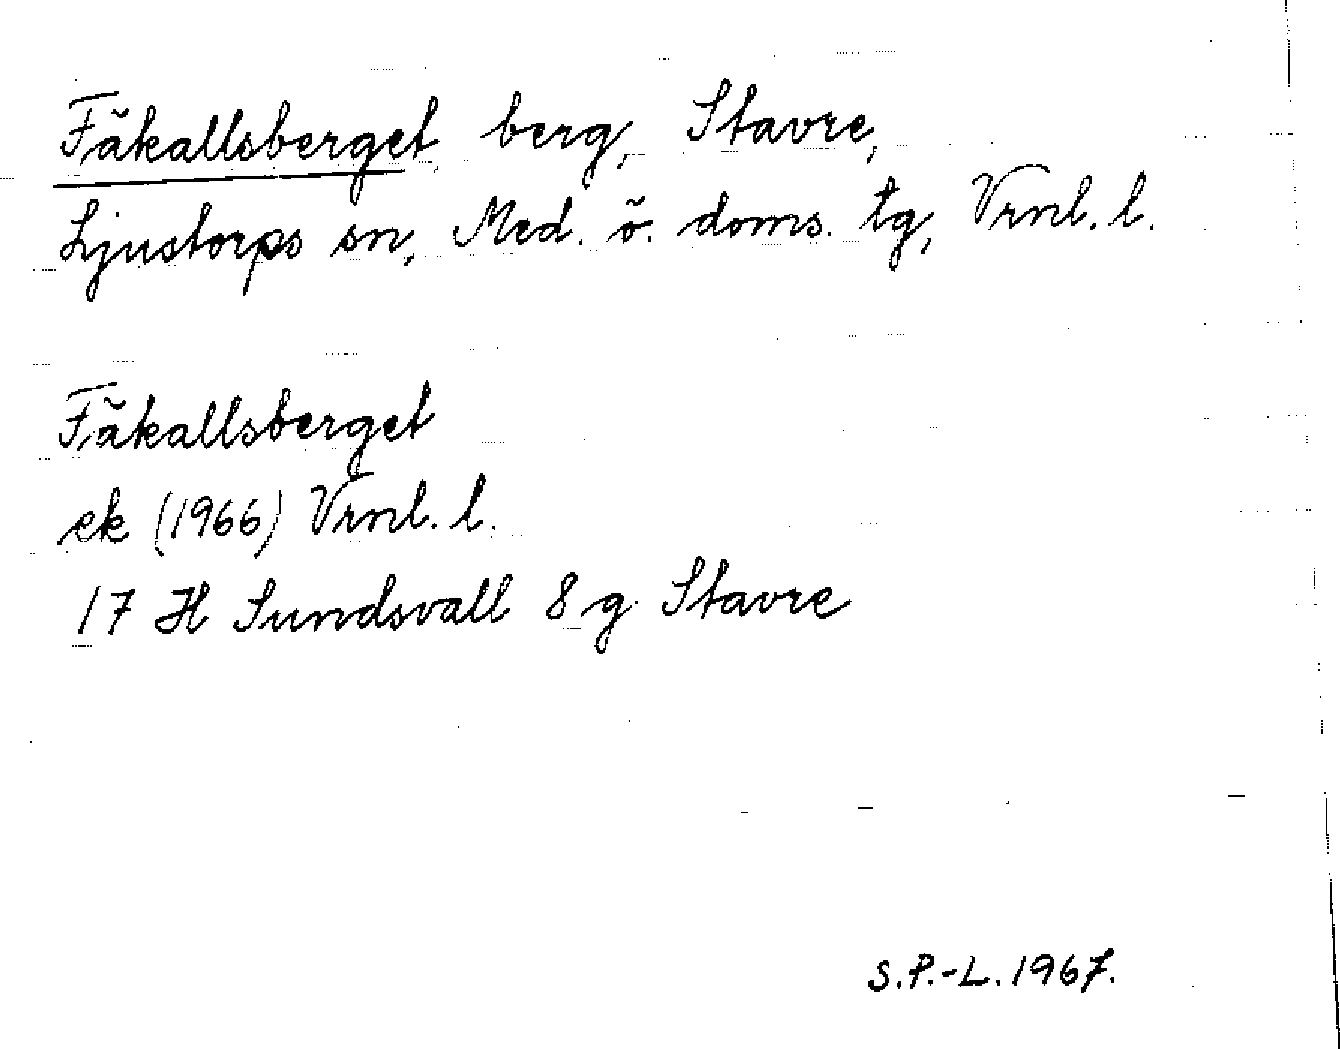 Fäkallsberget, berg, Stavre,
Ljustorps sn, Med. ö. doms. tg, Vrnl. l.
Fäkallsberget
ek (1966) Vrnl. l.
17 H Sundsvall 8 g Stavre
S.P.-L. 1967.